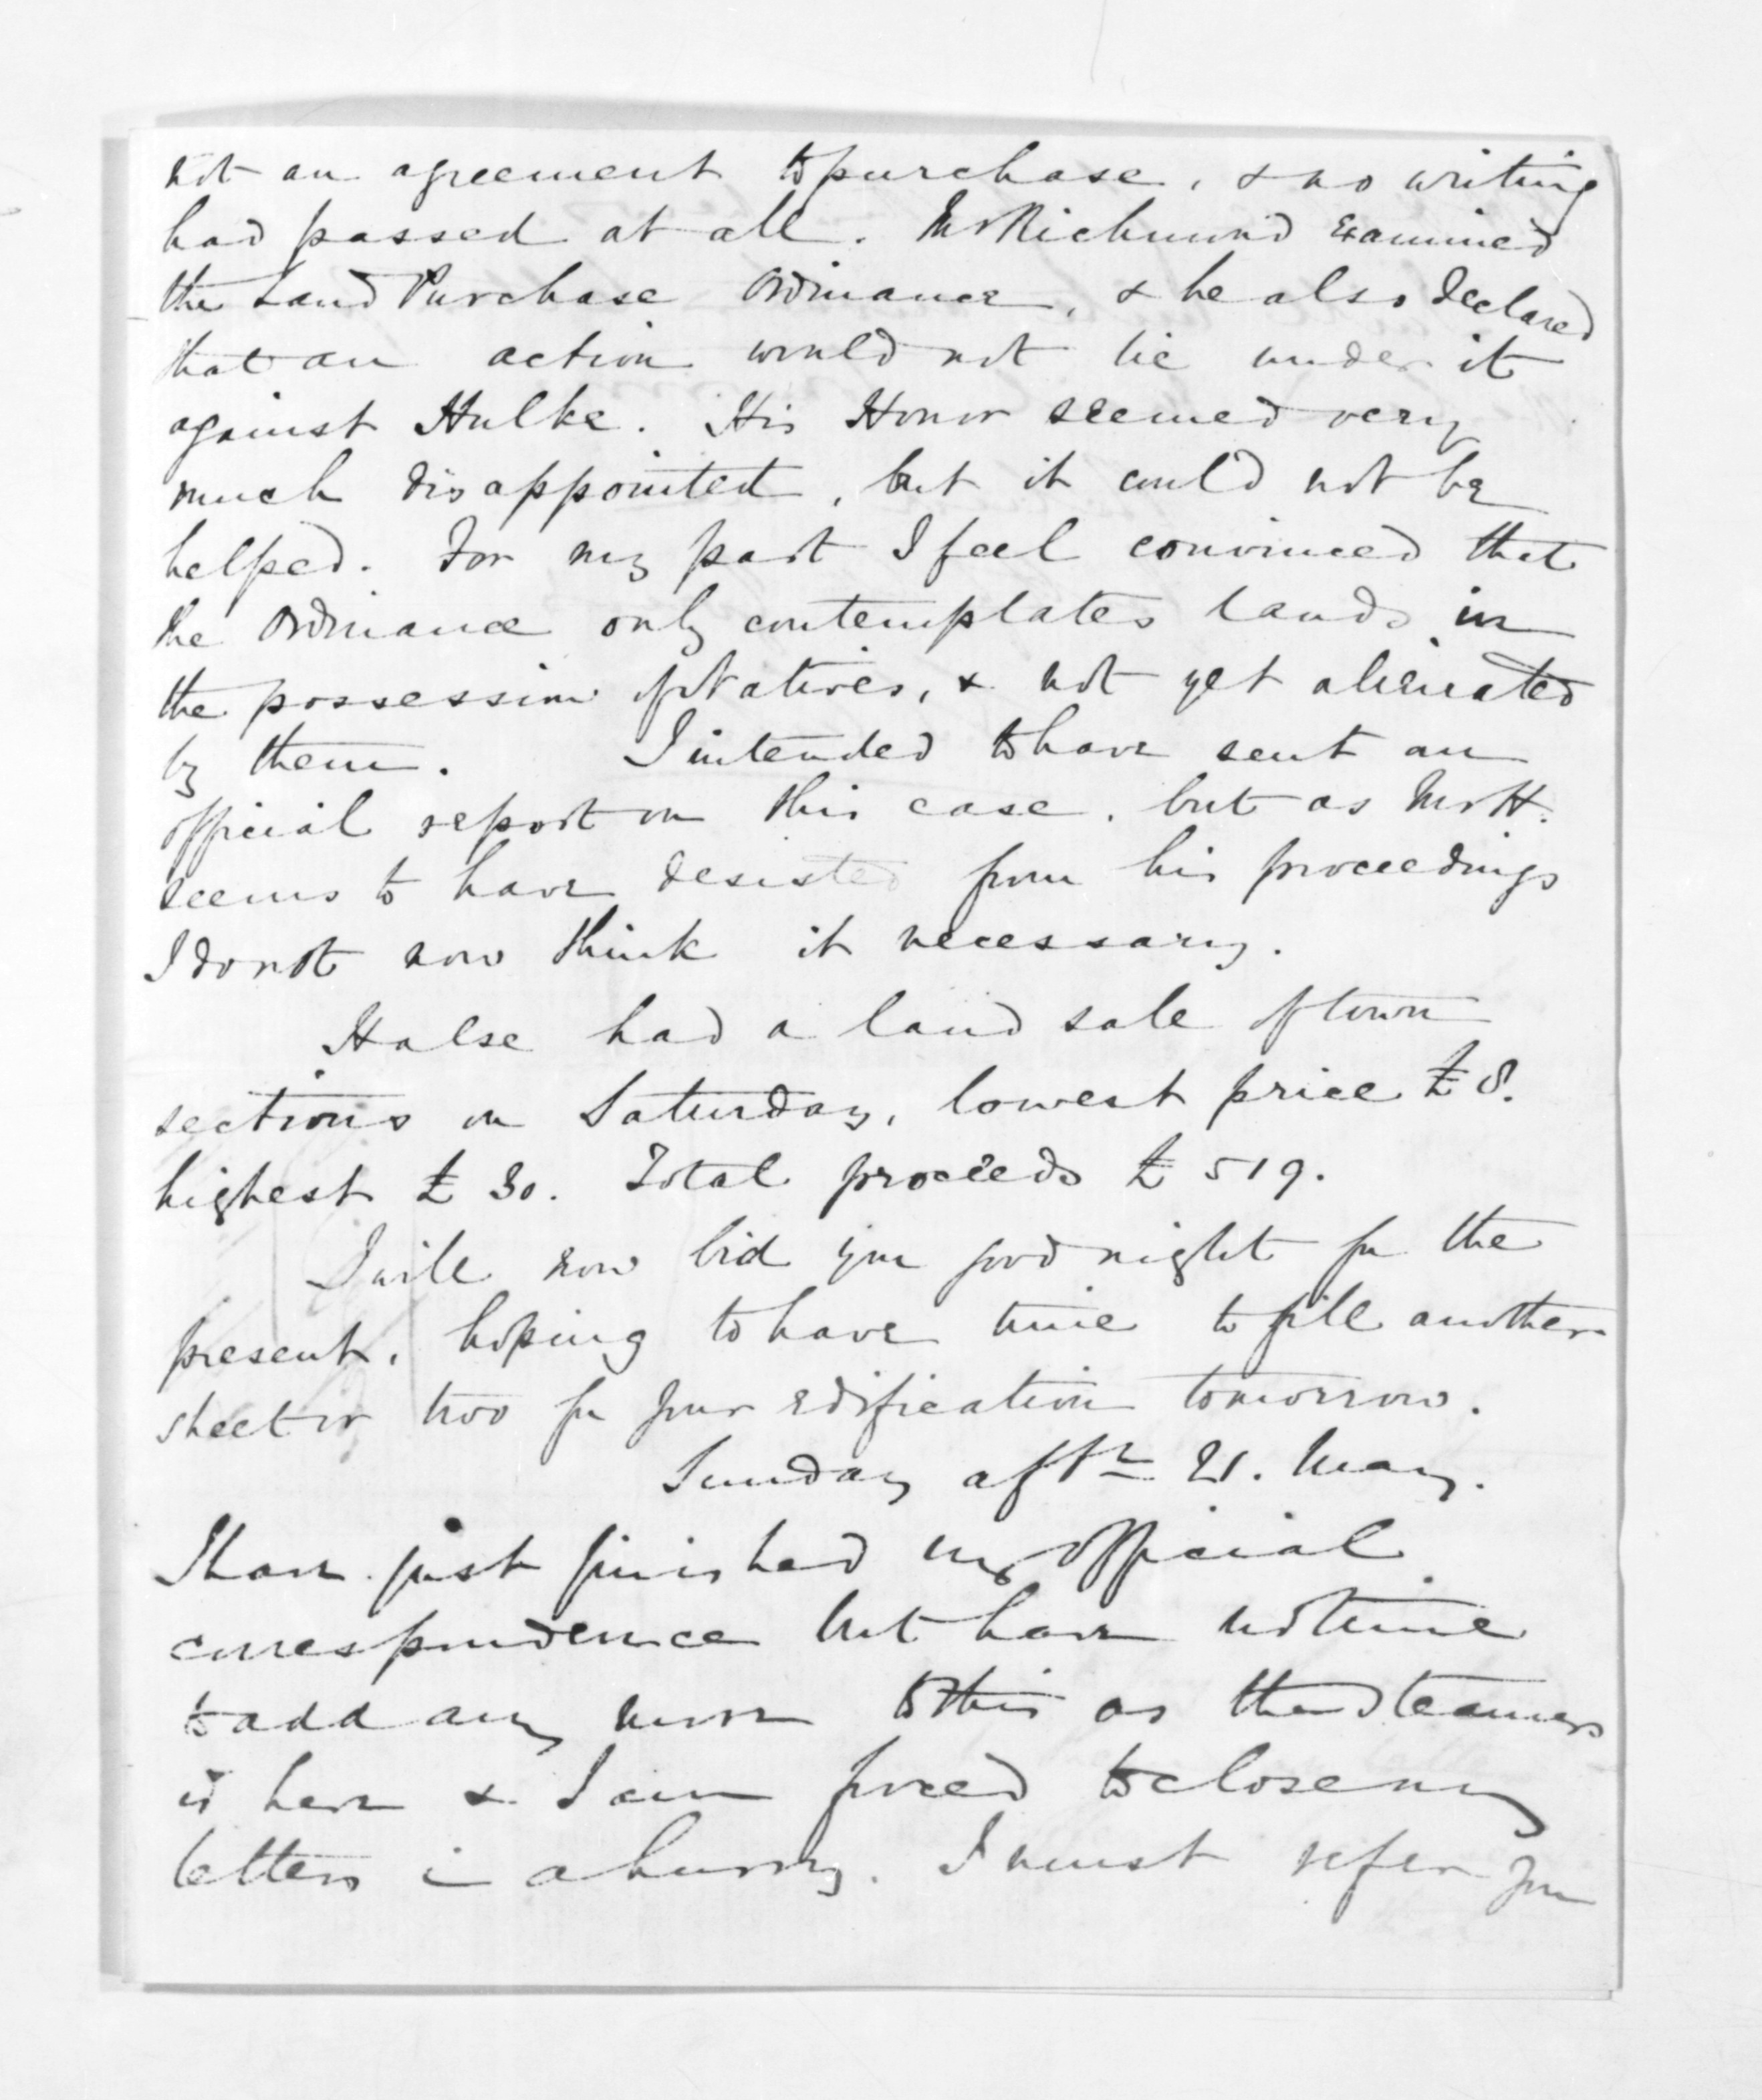 not an agreement to purchase, & no writing
had passed at all. Mr Richmond examined
the Land Purchase Ordinance, & he also declared
that an action would not lie under it
against Hulke. His Honor seemed very
much disappointed, but it could not be
helped. For my part I feel convinced that
the Ordinance only contemplates lands in
the possession of Natives, & not yet alienated
by them. I intended to have sent an
official report on this case, but as Mr H.
seems to have desisted from his proceedings
I do not now think it necessary.
Halse had a land sale of town
sections on Saturday, lowest price £8.
highest £30. Total proceeds £519.
I will now bid you good night for the
present, hoping to have time to fill another
sheet or two for your edification tomorrow.
Sunday aftn 21. May.
I have just finished my official
correspondence but have not time
to add any more to this as the Steamer
is here & I am forced to close my
letters in a hurry. I must refer you